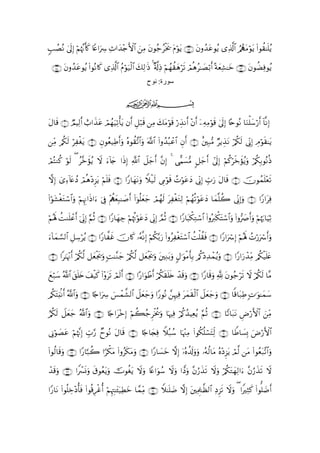 يُلَٰقُوا۟ يَوْمَهُمُ ٱلَّذِى يُوعَدُونَ ۝ يَوْمَ يَخْرُجُونَ مِنَ ٱلْأَجْدَاثِ سِرَاعًا كَأَنَّهُمْ إِلَىٰ نُصُبٍ
يُوفِضُونَ ۝ خَٰشِعَةً أَبْصَٰرُهُمْ تَرْهَقُهُمْ ذِلَّةٌ ۚ ذَٰلِكَ ٱلْيَوْمُ ٱلَّذِى كَانُوا۟ يُوعَدُونَ ۝
سورة نوح
بِسْمِ ٱللَّهِ ٱلرَّحْمَٰنِ ٱلرَّحِيمِ
إِنَّآ أَرْسَلْنَا نُوحًا إِلَىٰ قَوْمِهِۦٓ أَنْ أَنذِرْ قَوْمَكَ مِن قَبْلِ أَن يَأْتِيَهُمْ عَذَابٌ أَلِيمٌ ۝ قَالَ
يَٰقَوْمِ إِنِّى لَكُمْ نَذِيرٌ مُّبِينٌ ۝ أَنِ ٱعْبُدُوا۟ ٱللَّهَ وَٱتَّقُوهُ وَأَطِيعُونِ ۝ يَغْفِرْ لَكُم مِّن
ذُنُوبِكُمْ وَيُؤَخِّرْكُمْ إِلَىٰٓ أَجَلٍ مُّسَمًّى ۚ إِنَّ أَجَلَ ٱللَّهِ إِذَا جَآءَ لَا يُؤَخَّرُ ۖ لَوْ كُنتُمْ
تَعْلَمُونَ ۝ قَالَ رَبِّ إِنِّى دَعَوْتُ قَوْمِى لَيْلًا وَنَهَارًا ۝ فَلَمْ يَزِدْهُمْ دُعَآءِىٓ إِلَّا
فِرَارًا ۝ وَإِنِّى كُلَّمَا دَعَوْتُهُمْ لِتَغْفِرَ لَهُمْ جَعَلُوٓا۟ أَصَٰبِعَهُمْ فِىٓ ءَاذَانِهِمْ وَٱسْتَغْشَوْا۟
ثِيَابَهُمْ وَأَصَرُّوا۟ وَٱسْتَكْبَرُوا۟ ٱسْتِكْبَارًا ۝ ثُمَّ إِنِّى دَعَوْتُهُمْ جِهَارًا ۝ ثُمَّ إِنِّىٓ أَعْلَنتُ لَهُمْ
وَأَسْرَرْتُ لَهُمْ إِسْرَارًا ۝ فَقُلْتُ ٱسْتَغْفِرُوا۟ رَبَّكُمْ إِنَّهُۥ كَانَ غَفَّارًا ۝ يُرْسِلِ ٱلسَّمَآءَ
عَلَيْكُم مِّدْرَارًا ۝ وَيُمْدِدْكُم بِأَمْوَٰلٍ وَبَنِينَ وَيَجْعَل لَّكُمْ جَنَّٰتٍ وَيَجْعَل لَّكُمْ أَنْهَٰرًا ۝
مَّا لَكُمْ لَا تَرْجُونَ لِلَّهِ وَقَارًا ۝ وَقَدْ خَلَقَكُمْ أَطْوَارًا ۝ أَلَمْ تَرَوْا۟ كَيْفَ خَلَقَ ٱللَّهُ سَبْعَ
سَمَٰوَٰتٍ طِبَاقًا ۝ وَجَعَلَ ٱلْقَمَرَ فِيهِنَّ نُورًا وَجَعَلَ ٱلشَّمْسَ سِرَاجًا ۝ وَٱللَّهُ أَنۢبَتَكُم
مِّنَ ٱلْأَرْضِ نَبَاتًا ۝ ثُمَّ يُعِيدُكُمْ فِيهَا وَيُخْرِجُكُمْ إِخْرَاجًا ۝ وَٱللَّهُ جَعَلَ لَكُمُ
ٱلْأَرْضَ بِسَاطًا ۝ لِّتَسْلُكُوا۟ مِنْهَا سُبُلًا فِجَاجًا ۝ قَالَ نُوحٌ رَّبِّ إِنَّهُمْ عَصَوْنِى
وَٱتَّبَعُوا۟ مَن لَّمْ يَزِدْهُ مَالُهُۥ وَوَلَدُهُۥٓ إِلَّا خَسَارًا ۝ وَمَكَرُوا۟ مَكْرًا كُبَّارًا ۝ وَقَالُوا۟
لَا تَذَرُنَّ ءَالِهَتَكُمْ وَلَا تَذَرُنَّ وَدًّا وَلَا سُوَاعًا وَلَا يَغُوثَ وَيَعُوقَ وَنَسْرًا ۝ وَقَدْ
أَضَلُّوا۟ كَثِيرًا ۖ وَلَا تَزِدِ ٱلظَّٰلِمِينَ إِلَّا ضَلَٰلًا ۝ مِّمَّا خَطِيٓـَٰٔتِهِمْ أُغْرِقُوا۟ فَأُدْخِلُوا۟ نَارًا